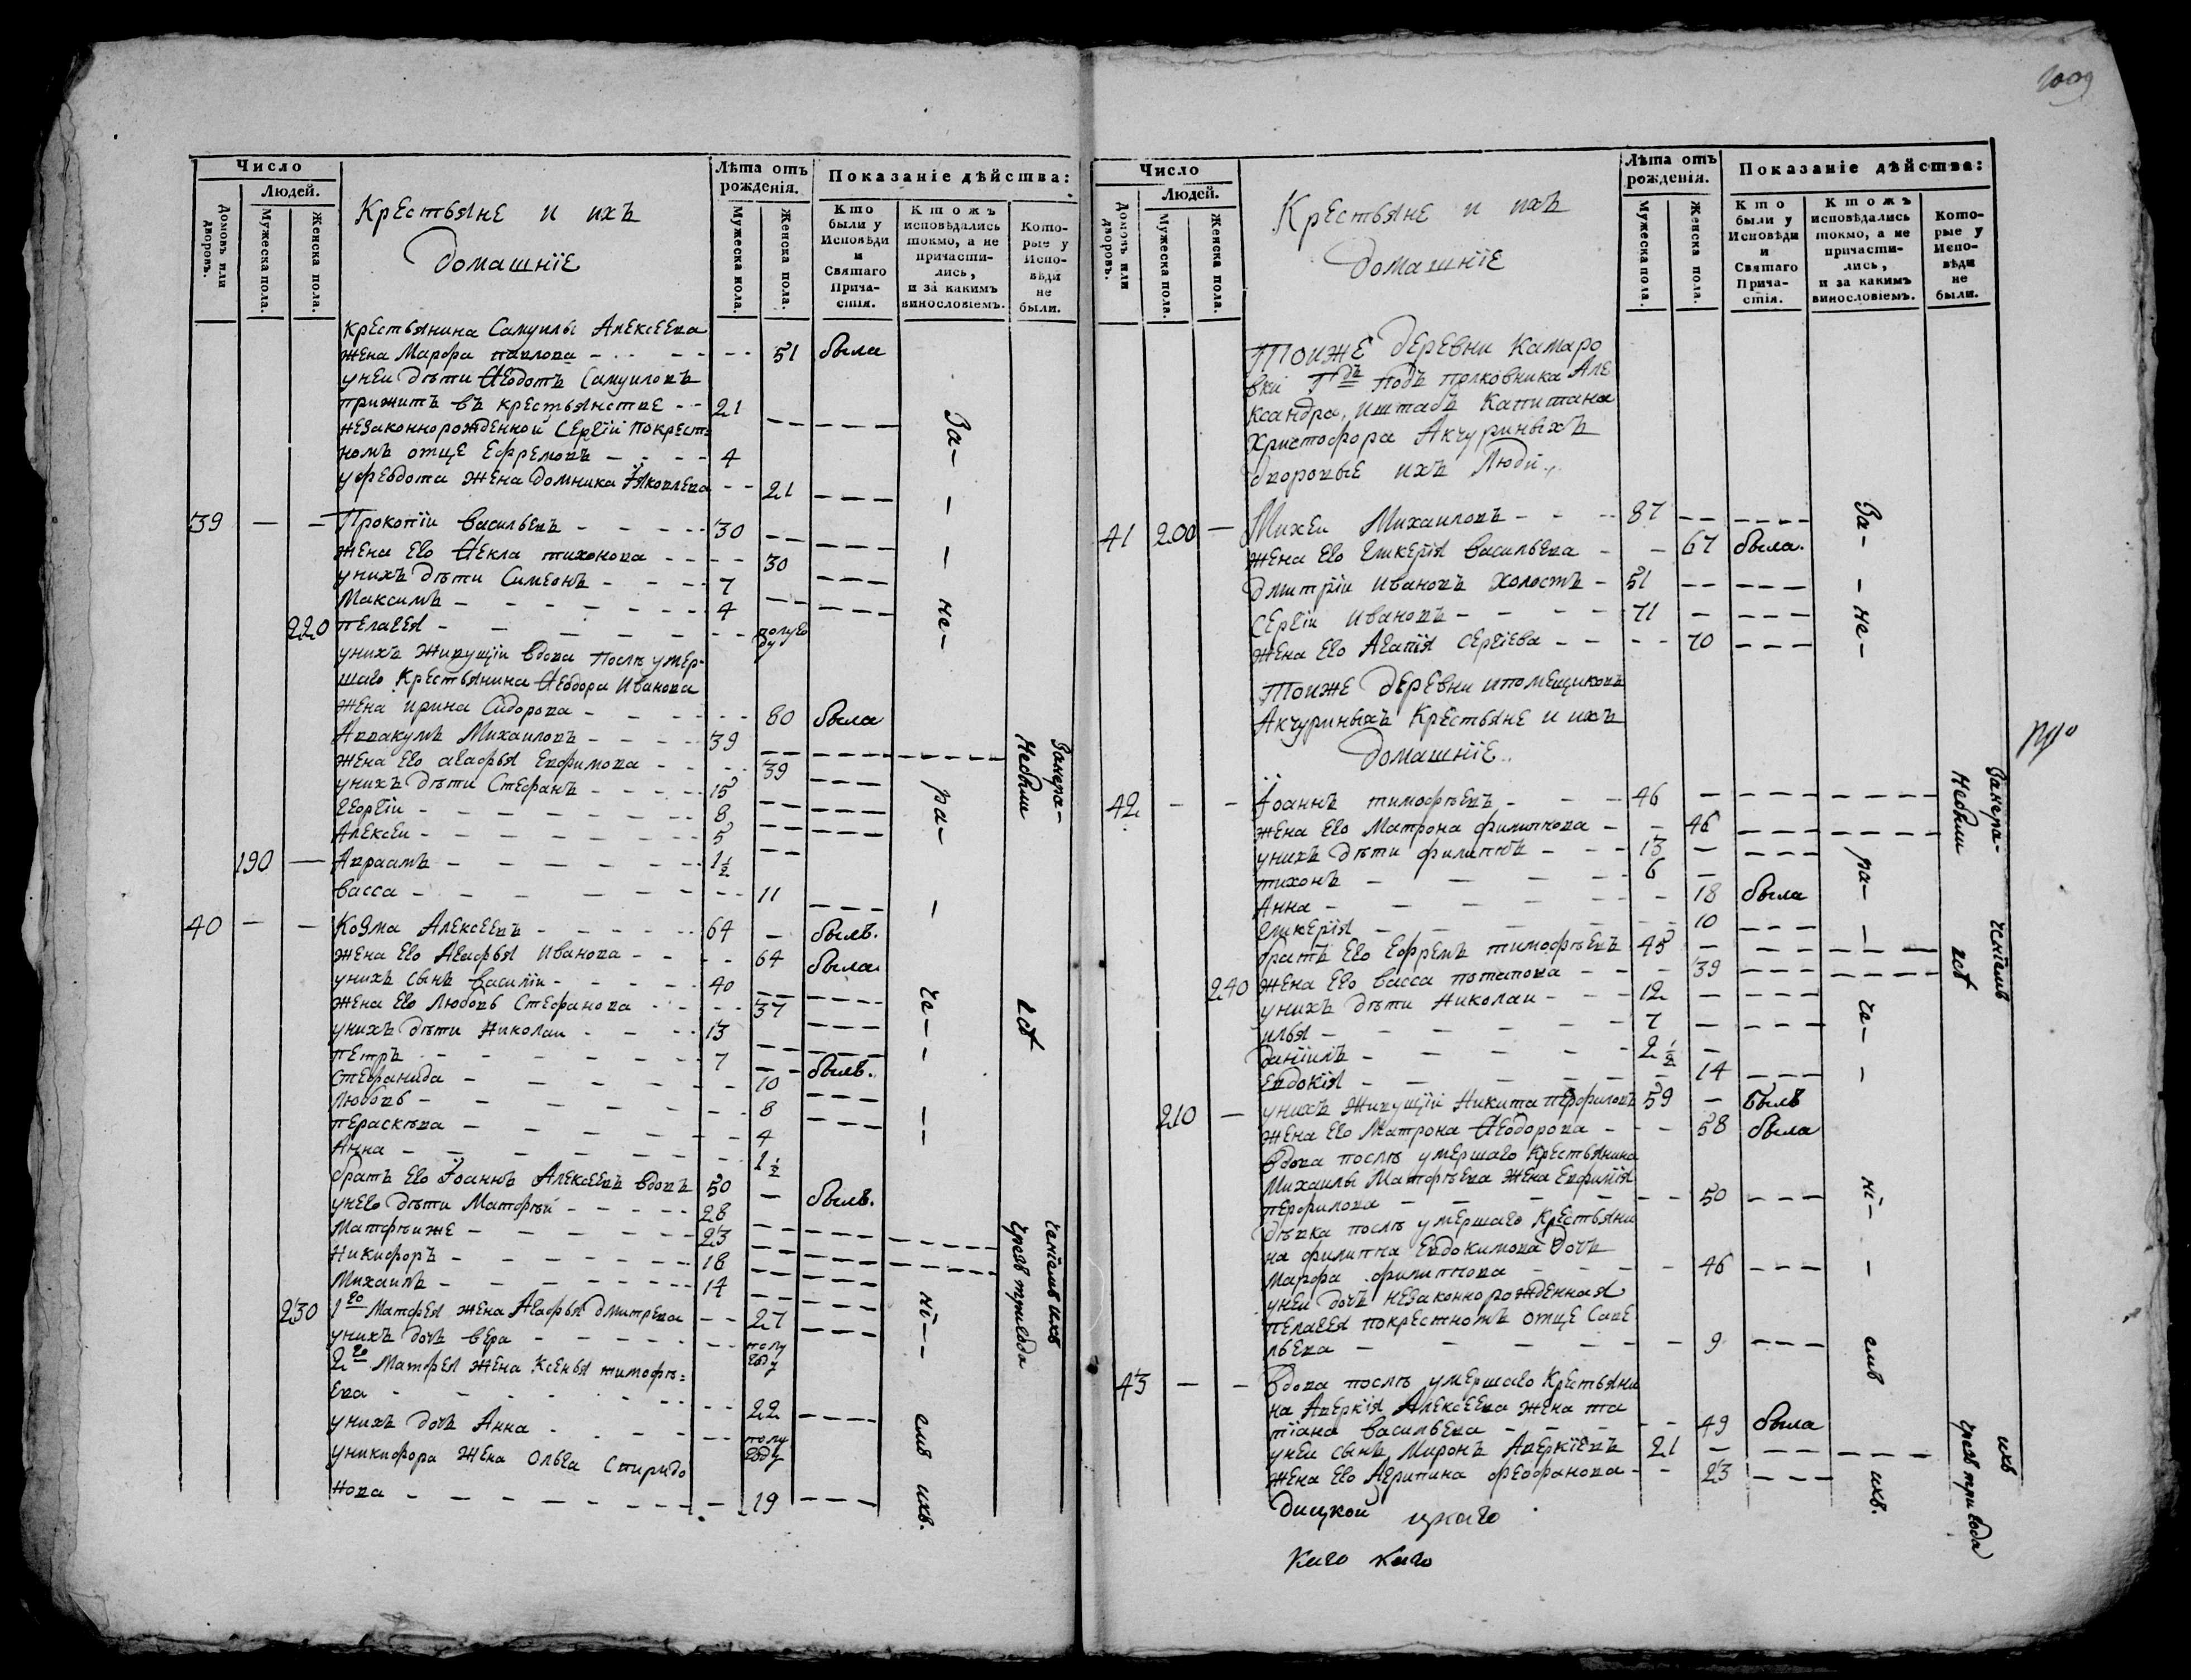 Число
Людей.
Домовъ или дворовъ.
Мужеска пола.
Женска пола.
Крестьяне и ихъ
домашніе
Лѣта отъ рожденія.
Мужеска пола.
Женска пола.
Показаніе дѣйства:
Кто были у Исповѣди и Святаго Прича- стія.
Ктожъ исповѣдались токмо, а не причасти- лись, и за какимъ винословіемъ.
Кото- рые у Испо- вѣди не были.
крестьянина Самуилы Алексеева
жена Марфа павлова - - - - 51 была
унеи дѣти Ѳеодотъ Самуиловъ
прижитъ въ крестьянстве - - 21
незаконнорожденной Сергіи покрест=
номъ отце Ефремовъ - - - - 4
уфеодота жена домника Іяковлева - - 21
39 — — Прокопіи васильевъ - - - - 30
жена его Ѳекла тихонова - - - - 30
унихъ дѣти Симеонъ - - - - 7
Максимъ - - - - - - 4
220 пелагея - - - - - - полуго ду
унихъ живущіи вдова послѣ умер-
шаго крестьянина Ѳеодора Иванова
жена ирина Сидорова - - - - 80 была
Аввакумъ Михаиловъ - - - - 39
жена его агафья Евфимова - - - 39
унихъ дѣти Стефанъ - - - - 15
Георгіи - - - - - - 8
Алексеи - - - - - - 5
190 — Авраамъ - - - - - - 1½
васса - - - - - - - 11
40 — — Козма Алексеевъ - - - - - 64 - былъ.
жена его Агафья иванова - - - - 64 была
унихъ сынъ василіи - - - - - 40
жена его любовь Стефанова - - - - 37
унихъ дѣти Николаи - - - - 13
петръ - - - - - - 7
Стефанида - - - - - - 10 былъ.
любовь - - - - - - - 8
пераскѣва - - - - - - 4
Анна - - - - - - - 1½
братъ его Іоаннъ Алексеевъ вдовъ 50 - былъ.
унего дѣти Матфѣй - - - - - 28
Матфѣиже - - - - - - 23
Никифоръ - - - - - - 18
Михаилъ - - - - - - 14
230 1го Матфея жена Агафья дмитрева - - 27
унихъ дочь вера - - - - - - полу году
2го Матфея жена Ксенья тимофѣ=
ева - - - - - - - 22
унихъ дочь Анна - - - - - полу году
уникифора жена Ольга Спиридо
нова - - - - - - - 19
За- - - не- ра- - че- - - ні- - емъ ихъ.
Занера-
Небыли
всѣ
ченіемъ ихъ
чрезъ три года
Число
Людей.
Домовъ или дворовъ.
Мужеска пола.
Женска пола.
Крестьяне и ихъ
домашніе
Лѣта отъ рожденія.
Мужеска пола.
Женска пола.
Показаніе дѣйства:
Кто были у Исповѣди и Святаго Прича- стія.
Ктожъ исповѣдались токмо, а не причасти- лись, и за какимъ винословіемъ.
Кото- рые у Испо- вѣди не были.
Тоиже деревни Камаро
вки Гдъ подъ полковника Але
ксандра, иштабъ Капитана
Христофора Акчуриныхъ
дворовые ихъ люди.
41 200 — Михеи Михаиловъ - - - 87
жена его гликерія васильева - - 67 была.
дмитріи ивановъ холостъ - 51
Сергіи ивановъ - - - - 71
жена его Агапія Сергіева - - - - 70
Тоиже деревни ипомещиковъ
Акчуриныхъ крестьяне и ихъ
домашніе.
42 - - Іоаннъ тимофѣевъ - - - 46
жена его Матрона филиппова - - 46
унихъ дѣти филиппъ - - - 13
тихонъ - - - - - 6
Анна - - - - - - 18 была
гликерія - - - - - 10
братъ его Ефремъ тимофѣевъ 45
240 жена его васса потапова - - - 39
унихъ дѣти Николаи - - - 12
илья - - - - - - 7
даніилъ - - - - - 2½
Евдокія - - - - - - 14
210 — унихъ живущіи Никита перфиловъ 59 - былъ
жена его Матрона Ѳеодорова - - - 58 была
вдова послѣ умершаго крестьянина
Михаилы Матфѣева жена Евфимія
перфилова - - - - - 50
дѣвка послѣ умершаго Крестьяни
на филиппа Евдокимова дочь
марфа филиппова - - - - 46
унеи дочь незаконнорожденная
пелагея покрестномъ отце Саве
льева - - - - - - 9
43 — - вдова послѣ умершаго крестьяни
на Аверкія Алексеева жена та
тіана васильева - - - - - 49 была
унеи сынъ Миронъ Аверкіевъ 21
жена его Агрипина феофанова - - 23
За- - не- ра- - че- - ні- - емъ ихъ.
Занера-
Небыли
ченіемъ
всѣ
ихъ
чрезъ три года
дицкой цкаго
каго каго